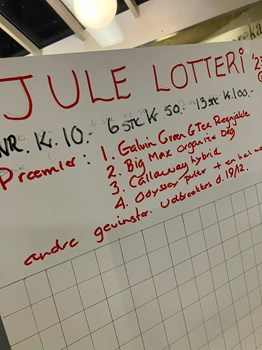 JULE LOTTERI '23
NR. Kr. 10.- 6 STK Kr 50.- 13 stk Kr. 100.-
Præmier: 1. Galvin Green GTex Regnjakke
2. Big Max Organize bag
3. Callaway hybrid
4. Odyssey putter + en hel
andre gevinster. Udtrækkes d. 19/12.